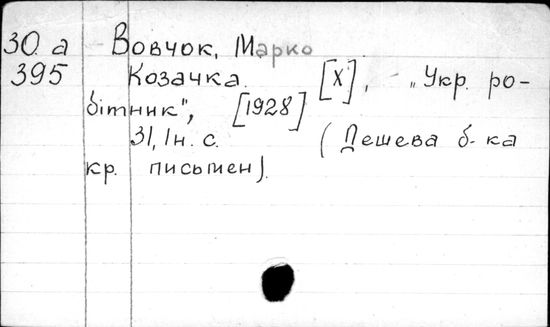 30. а Вовчок, Марко
395 Козачка. [Х], - „Укр. ро-
бітник", [1928]
31, 1н. с. (Дешева б-ка
кр. письмен).